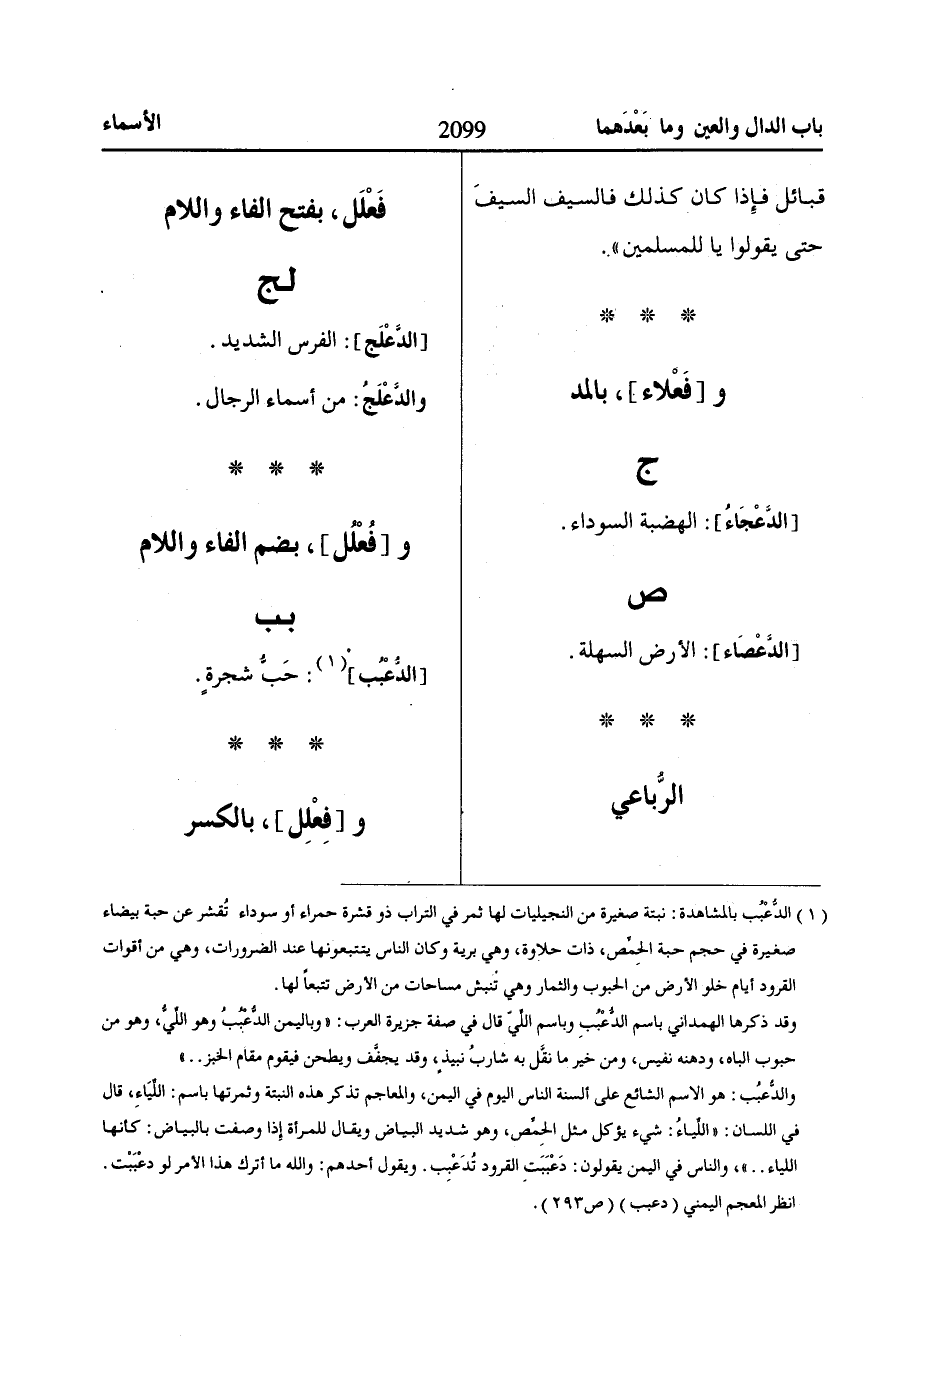 باب الدال والعين وما بَعْدَهما
2099
الأسماء
قبائل فإذا كان كذلك فالسيف السيفَ
حتى يقولوا يا للمسلمين».
* * *
و [فَعْلاء]، بالمد
ج
[الدَّعْجَاءُ]: الهضبة السوداء.
ص
[الدَّعْصَاء]: الأرض السهلة.
* * *
الرُّباعي
فَعْلَل، بفتح الفاء واللام
لج
[الدَّعْلَج]: الفرس الشديد.
والدَّعْلَجُ: من أسماء الرجال.
* * *
و [فُعْلُل]، بضم الفاء واللام
بب
[الدُّعْبُب](١): حَبُّ شجرةٍ.
* * *
و [فِعْلِل]، بالكسر
(١) الدُّعْبُب بالمشاهدة: نبتة صغيرة من النجيليات لها ثمر في التراب ذو قشرة حمراء أو سوداء تُقشر عن حبة بيضاء
صغيرة في حجم حبة الحِمِّص، ذات حلاوة، وهي برية وكان الناس يتتبعونها عند الضرورات، وهي من أقوات
القرود أيام خلو الأرض من الحبوب والثمار وهي تَنبش مساحات من الأرض تتبعاً لها.
وقد ذكرها الهمداني باسم الدُّعْبُب وباسم اللّيّ قال في صفة جزيرة العرب: «وباليمن الدُّعْبُبُ وهو اللّيُّ، وهو من
حبوب الباه، ودهنه نفيس، ومن خير ما نقَّل به شاربُ نبيذٍ، وقد يجفَّف ويطحن فيقوم مقام الخبز..»
والدُّعبُب: هو الاسم الشائع على ألسنة الناس اليوم في اليمن، والمعاجم تذكر هذه النبتة وثمرتها باسم: اللّيَاءِ، قال
في اللسان: «اللّياءُ: شيء يؤكل مثل الحِمِّص، وهو شديد البياض ويقال للمرأة إذا وصفت بالبياض: كأنها
اللياء..»، والناس في اليمن يقولون: دَعْبَبَتِ القرود تُدَعْبِب. ويقول أحدهم: والله ما أترك هذا الأمر لو دعْبَبْت.
انظر المعجم اليمني (دعبب) (ص٢٩٣).